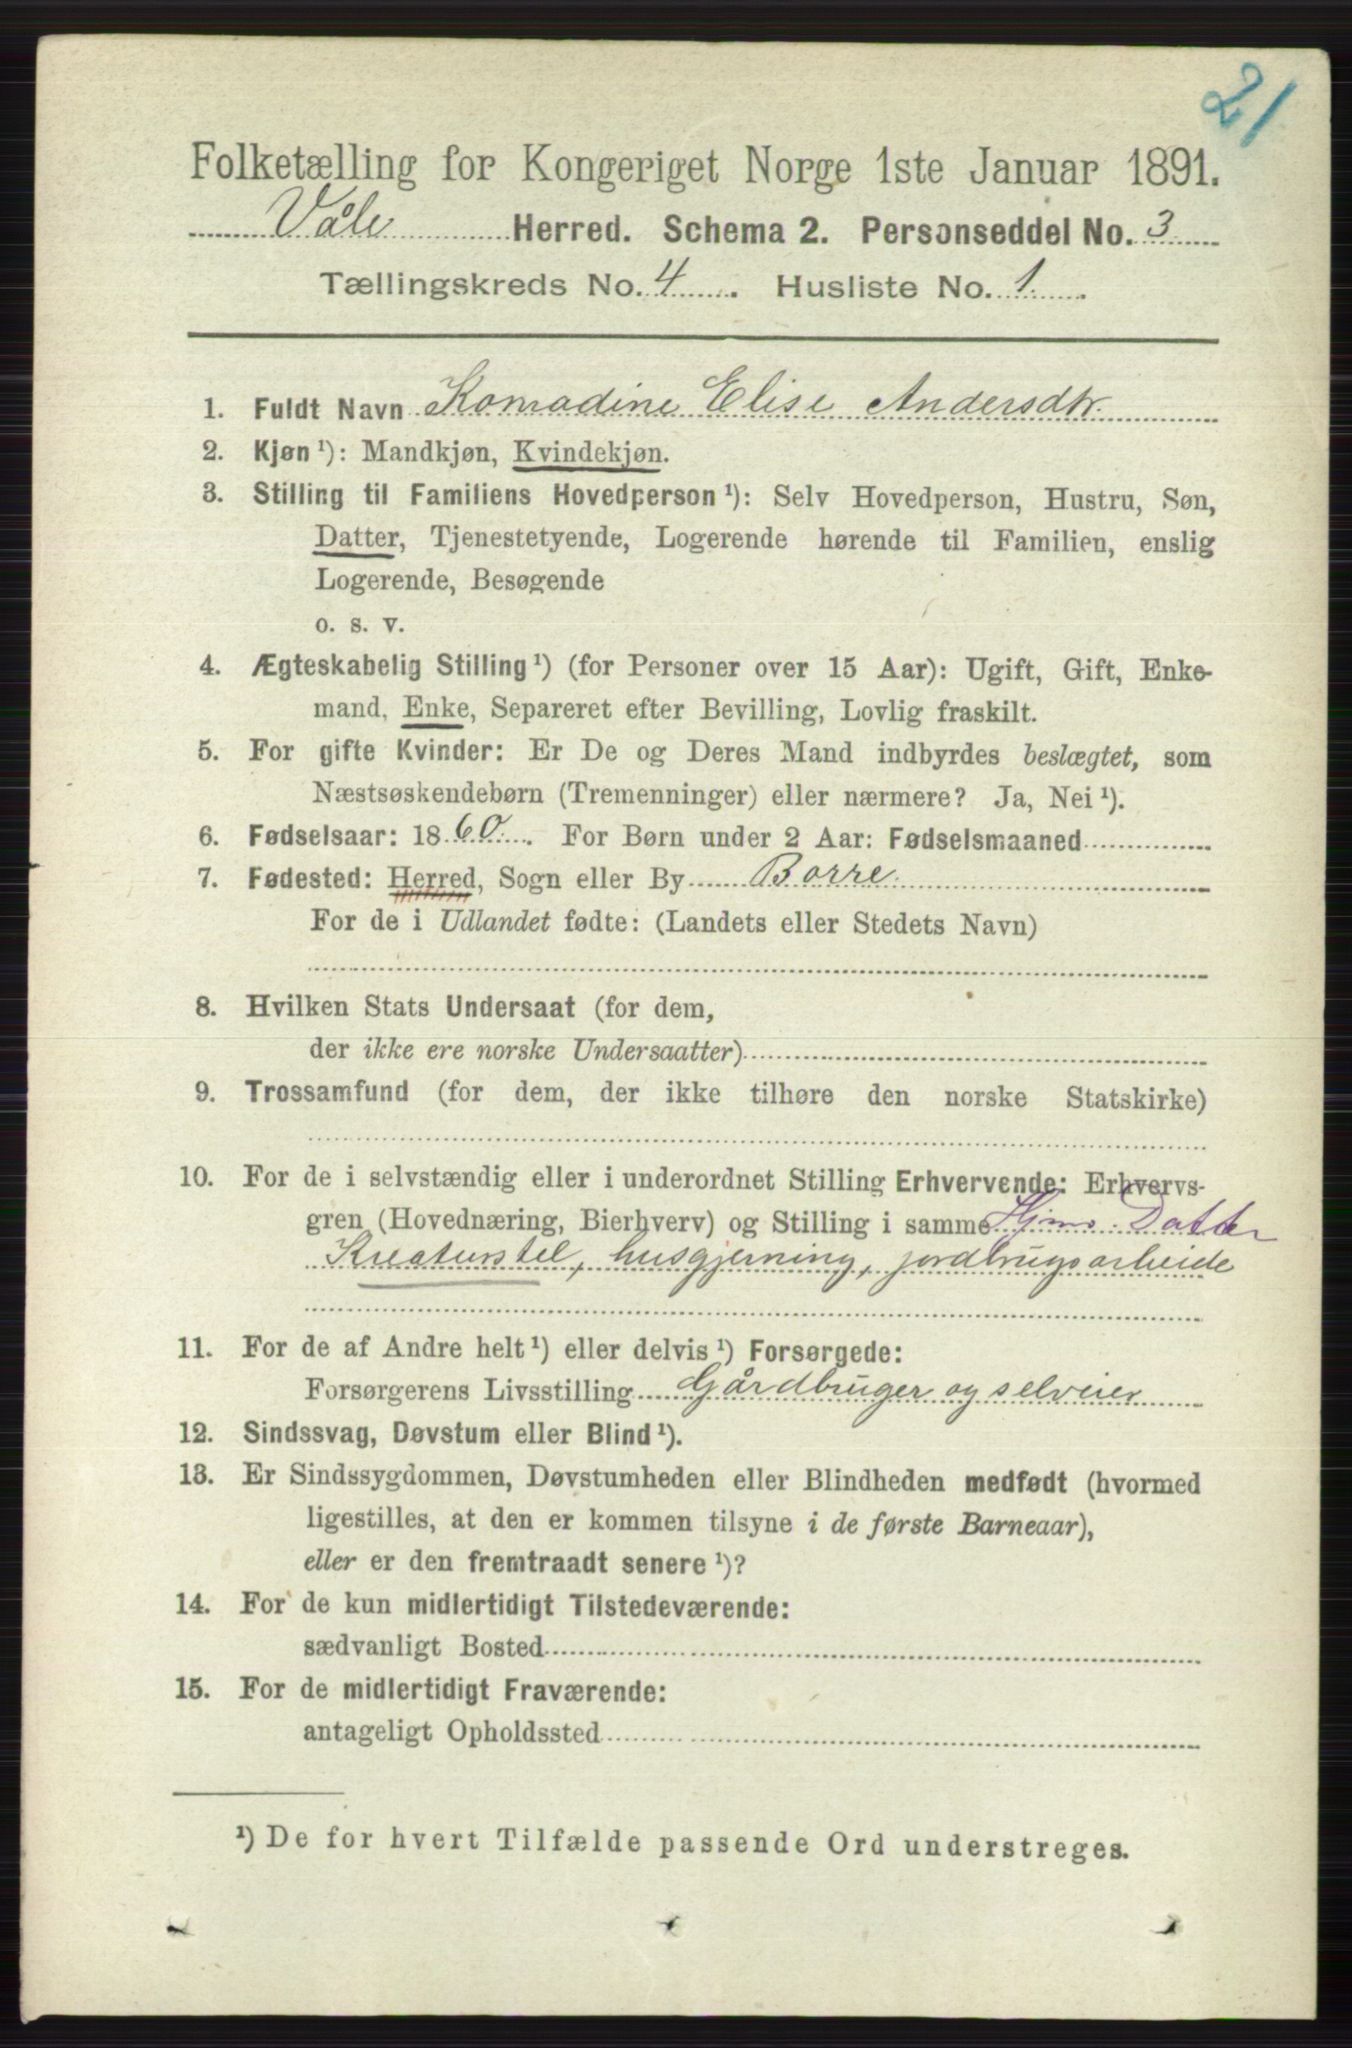 21
Folketælling for Kongeriget Norge 1ste Januar 1891.
Våle Herred. Schema 2. Personseddel No. 3
Tællingskreds No. 4. Husliste No. 1.
1. Fuldt Navn Komadine Elise Andersdtr.
2. Kjøn ¹): Mandkjøn, Kvindekjøn.
3. Stilling til Familiens Hovedperson ¹): Selv Hovedperson, Hustru, Søn,
Datter, Tjenestetyende, Logerende hørende til Familien, enslig
Logerende, Besøgende
o. s. v.
4. Ægteskabelig Stilling ¹) (for Personer over 15 Aar): Ugift, Gift, Enke-
mand, Enke, Separeret efter Bevilling, Lovlig fraskilt.
5. For gifte Kvinder: Er De og Deres Mand indbyrdes beslægtet, som
Næstsøskendebørn (Tremenninger) eller nærmere? Ja, Nei ¹).
6. Fødselsaar: 1860. For Børn under 2 Aar: Fødselsmaaned
7. Fødested: Herred, Sogn eller By Borre.
For de i Udlandet fødte: (Landets eller Stedets Navn)
8. Hvilken Stats Undersaat (for dem,
der ikke ere norske Undersaatter)
9. Trossamfund (for dem, der ikke tilhøre den norske Statskirke)
10. For de i selvstændig eller i underordnet Stilling Erhvervende: Erhvervs-
gren (Hovednæring, Bierhverv) og Stilling i samme Hjmv. Datter
Kreaturstel, husgjerning, jordbrugsarbeide
11. For de af Andre helt ¹) eller delvis ¹) Forsørgede:
Forsørgerens Livsstilling Gårdbruger og selveier
12. Sindssvag, Døvstum eller Blind ¹).
13. Er Sindssygdommen, Døvstumheden eller Blindheden medfødt (hvormed
ligestilles, at den er kommen tilsyne i de første Barneaar),
eller er den fremtraadt senere ¹)?
14. For de kun midlertidigt Tilstedeværende:
sædvanligt Bosted
15. For de midlertidigt Fraværende:
antageligt Opholdssted
¹) De for hvert Tilfælde passende Ord understreges.